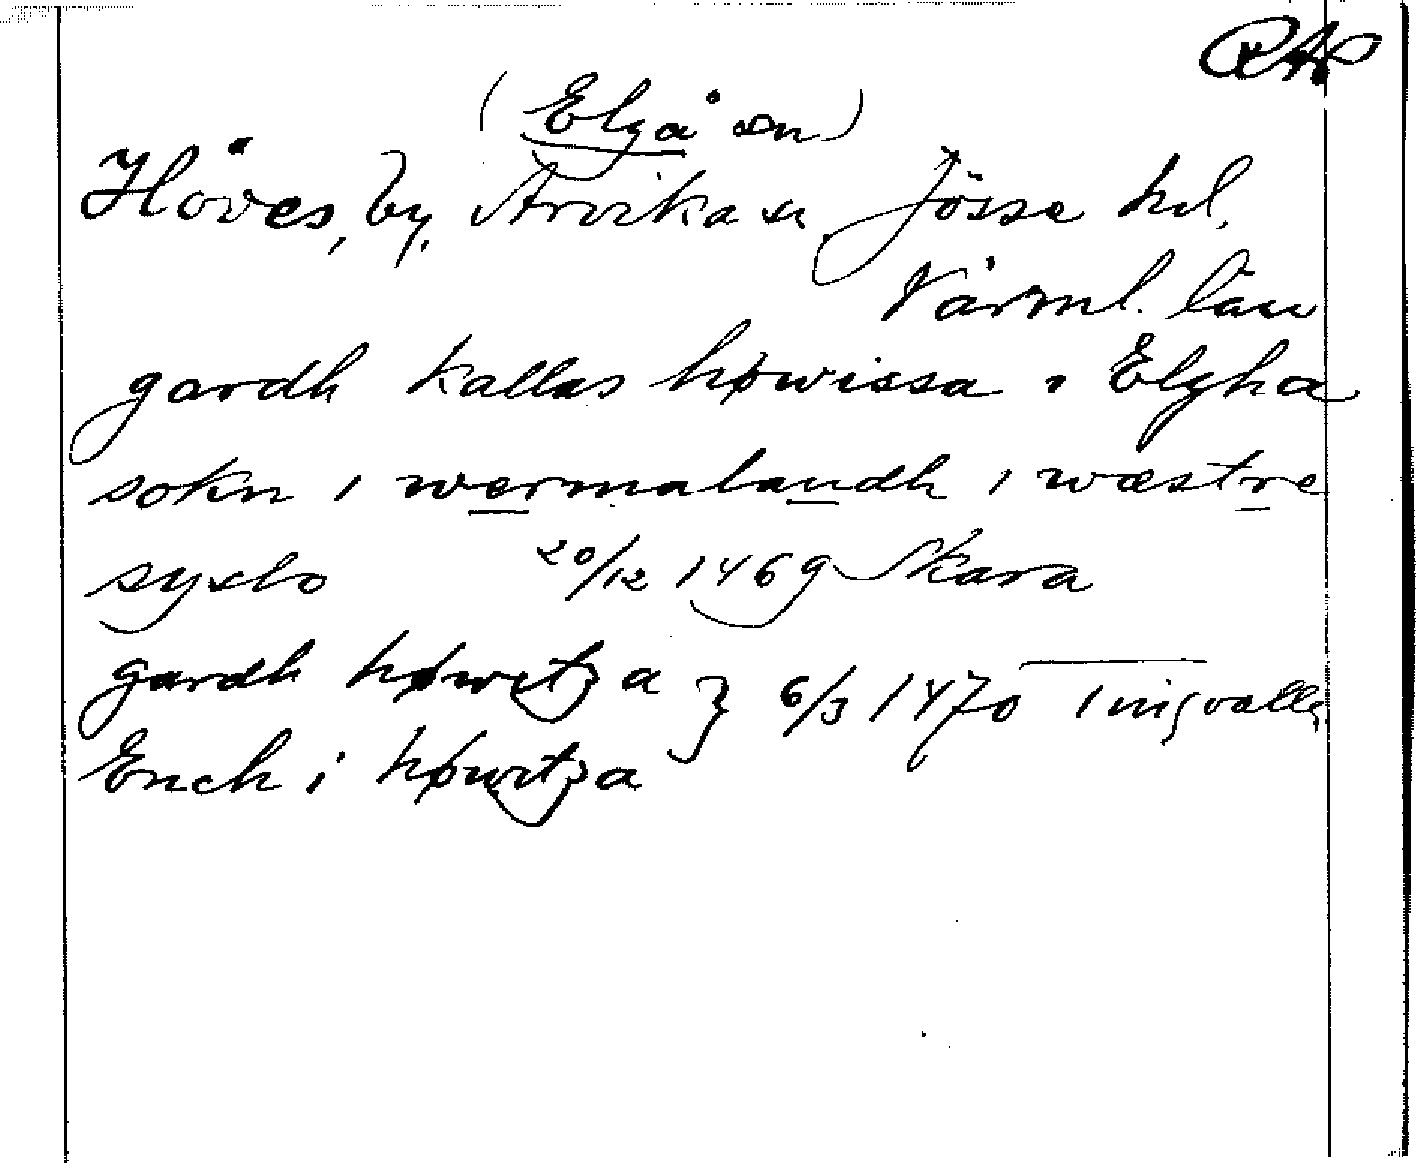 RAP
(Elgå sn)
Höves, by, Arvika sn, Jösse hd.
Värml. län
gardh kallas høwissa i Elgha
sokn i wermalandh i wæstre
syslo 20/12 1469 Skara
gardh høwitza } 6/3 1470 Tingvalla
Erich i høwitza